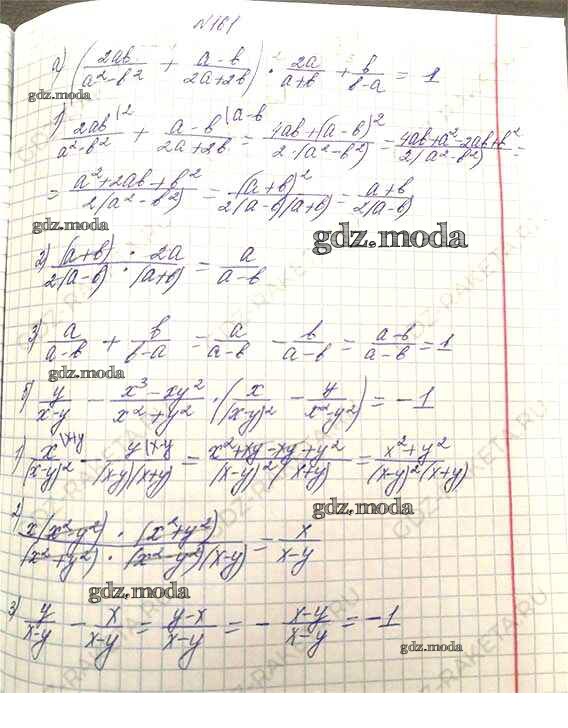 №161
а) (2ab/(a²-b²) + (a-b)/(2a+2b)) · 2a/(a+b) + b/(b-a) = 1
gdz.moda
1) 2ab|2/(a²-b²) + (a-b|a-b)/(2a+2b) = (4ab+(a-b)²)/(2·(a²-b²)) = (4ab+a²-2ab+b²)/(2(a²-b²)) =
= (a²+2ab+b²)/(2(a²-b²)) = (a+b)²/(2(a-b)(a+b)) = (a+b)/(2(a-b))
gdz.moda
gdz.moda
2) ((a+b) · 2a)/(2(a-b) · (a+b)) = a/(a-b)
3) a/(a-b) + b/(b-a) = a/(a-b) - b/(a-b) = (a-b)/(a-b) = 1
gdz.moda
б) y/(x-y) - (x³-xy²)/(x²+y²) · (x/(x-y)² - y/(x²-y²)) = -1
1) x|x+y/(x-y)² - y|x-y/((x-y)(x+y)) = (x²+xy-xy+y²)/((x-y)²(x+y)) = (x²+y²)/((x-y)²(x+y))
gdz.moda
2) (x(x²-y²) · (x²+y²))/((x²+y²) · (x²-y²)(x-y)) = x/(x-y)
gdz.moda
3) y/(x-y) - x/(x-y) = (y-x)/(x-y) = - (x-y)/(x-y) = -1
gdz.moda